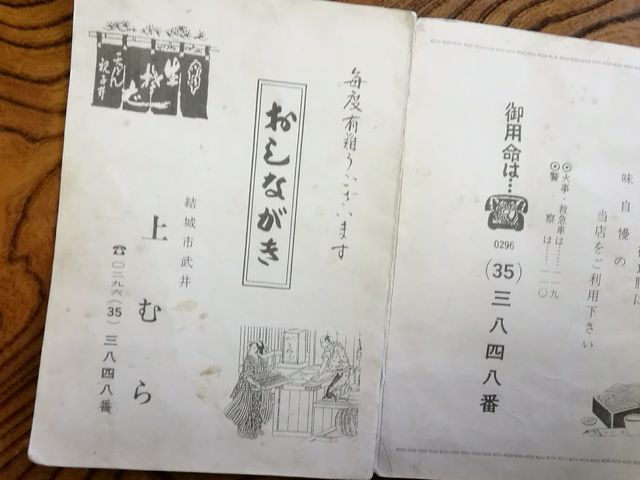 味自慢の
当店をご利用下さい
◎火事・救急車は……一一九
◎警察は……一一〇
御用命は…
0296
(35)三八四八番
毎度有難うございます
おしながき
結城市武井
上むら
☎〇二九六(35)三八四八番
生そば